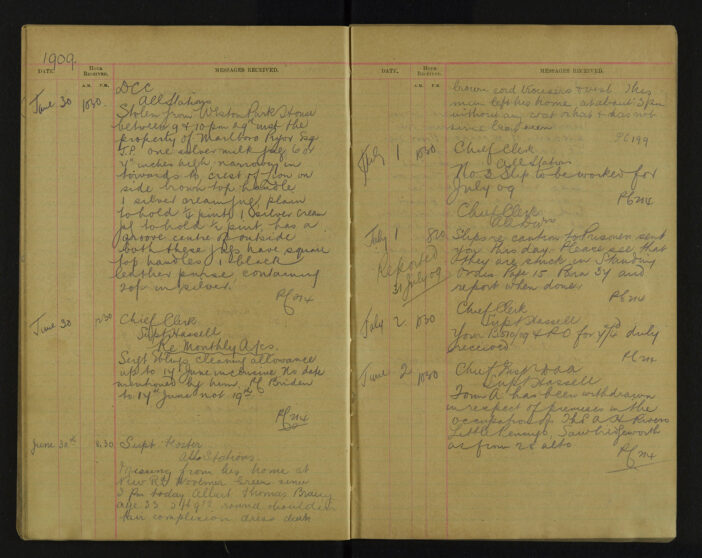 1909
DATE.
HOUR RECEIVED.
MESSAGES RECEIVED.
A.M. P.M.
June 30 10 30 DCC
All Stations
Stolen from Welston Park House
between 9 & 10 pm 29th inst the
property of Marlboro Pryor Esq
J.P. one silver milk jug 6 or
7 inches high narrowing in
towards top crest of Lion on
side brown top handle
1 silver cream jug plain
to hold ½ pint, 1 silver cream
jug to hold ½ pint has a
groove centre of outside
both these jugs have square
top handles 1 black
leather purse containing
20/- in silver
June 30 Chief Clerk
Supt Hassell
Re Monthly A/cs.
Sergt cleaning allowance
up to 14 June inclusive No date
mentioned by him, PC Briden
to 14th June not 19th
June 30th 8.30 Supt Foster
All Stations.
Missing from his home at
New Rd Woolmer Green since
3 Pm today Albert Thomas
age 33 5ft 9in round shoulders
fair complexion dress dark
DATE.
HOUR RECEIVED.
MESSAGES RECEIVED.
A.M. P.M.
brown cord trousers & vest This
man left his home at about 3 pm
without any coat or hat & has not
since been seen
PC 199
July 1 10 30 Chief Clerk
All Station
No 2 Slip to be worked for
July 09
Chief Clerk
July 1 Slips re caution to Prisoners sent
you this day. Please see that
they are stuck in Standing
Orders Page 15 Para 34 and
report when done
Reported
31 July 09
July 2 10 30 Chief Clerk
Supt Hassell
Your & R.O for duly
received
June 2 10 30 Chief Insp
Supt Hassell
Form A has been withdrawn
in respect of premises in the
occupation of Rivers
Little Sawbridgeworth
as from